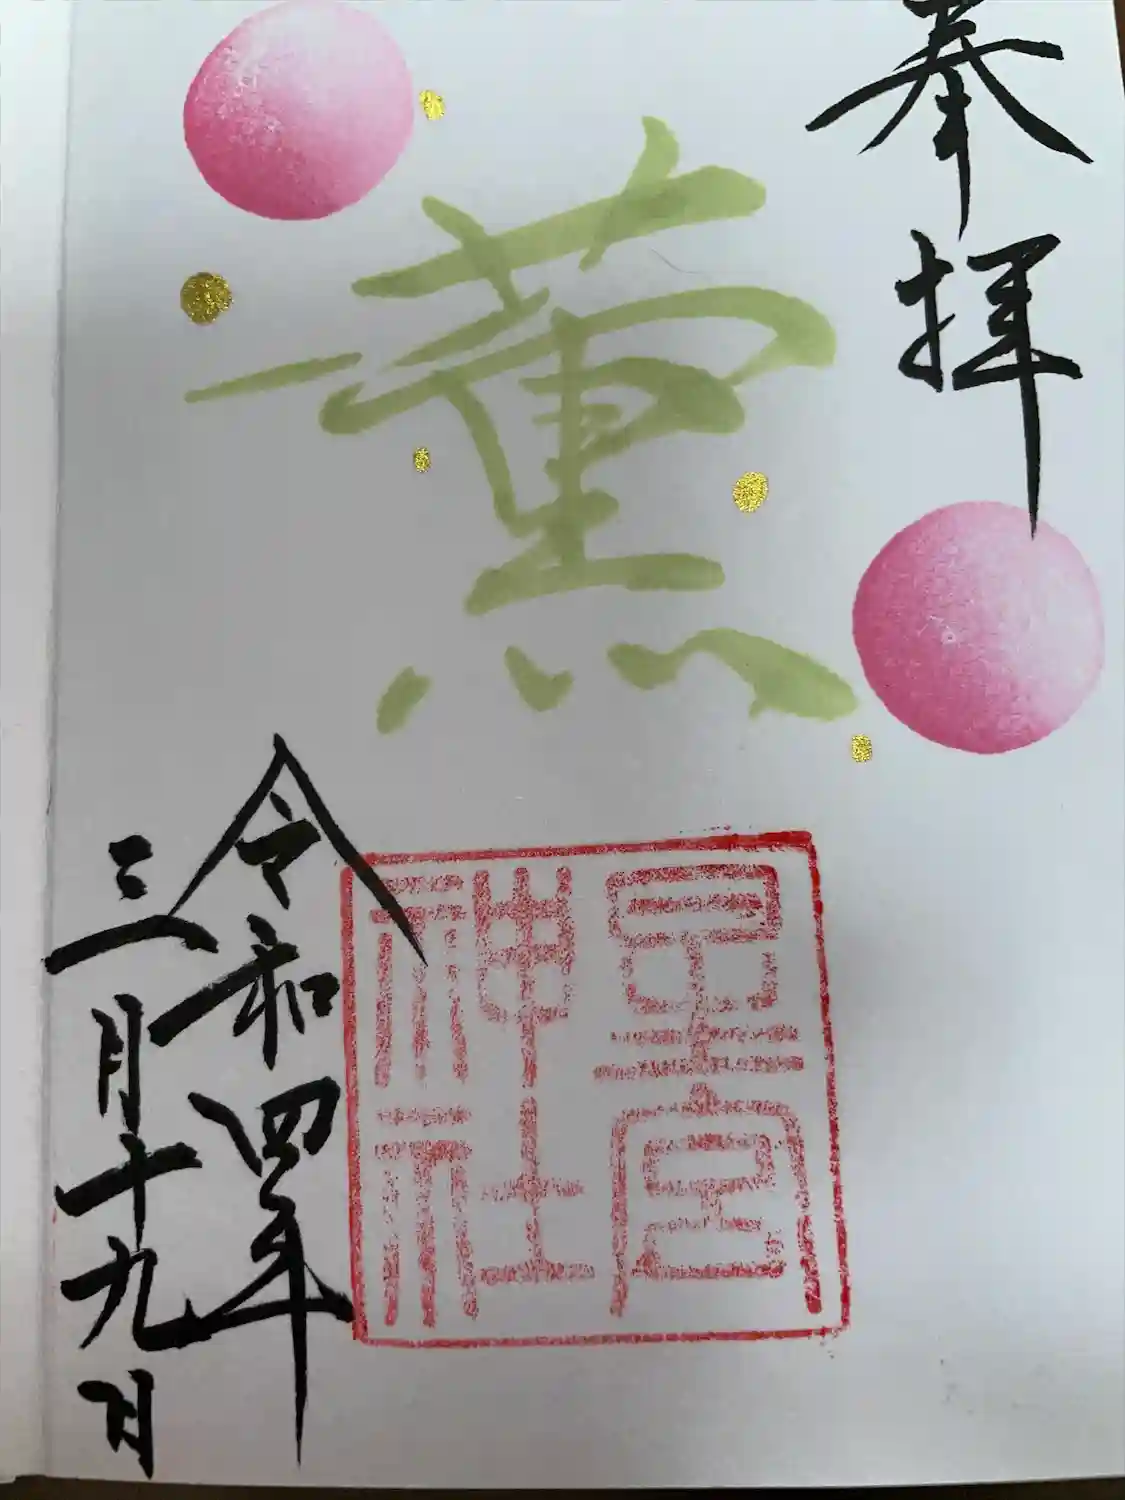 奉拝
薫
星宮
神社
令和四年
三月十九日